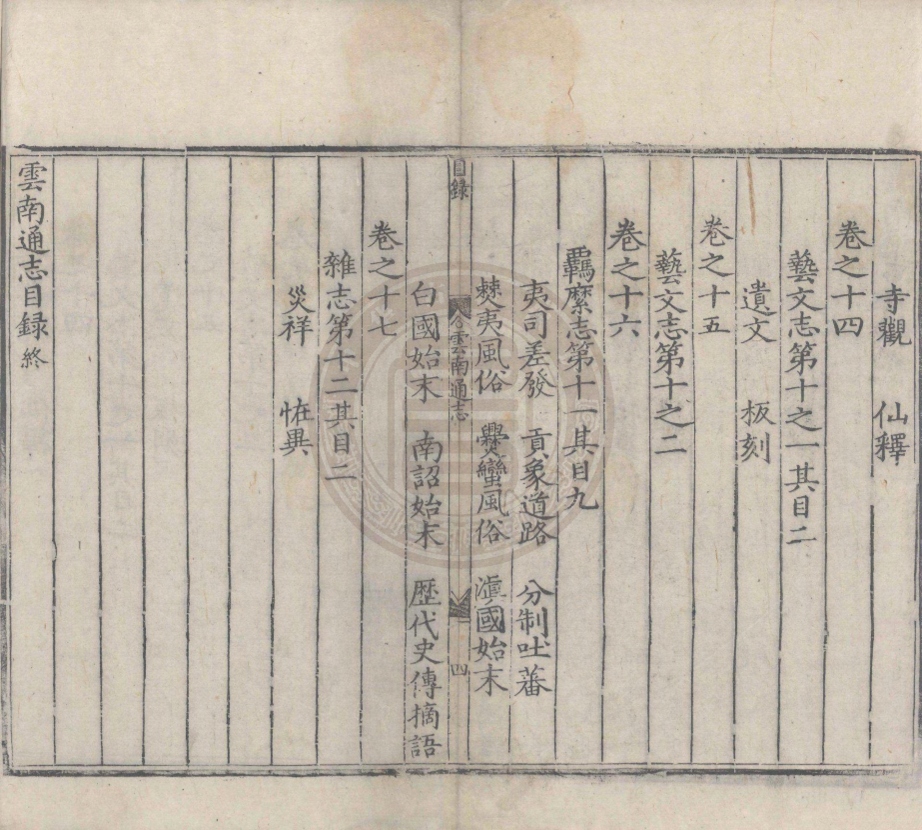 寺觀　仙釋
卷之十四
藝文志第十之一其目二
遺文　板刻
卷之十五
藝文志第十之二
卷之十六
羈縻志第十一其目九
夷司差發　貢象道路　分制吐蕃
僰夷風俗　爨蠻風俗　滇國始末
目錄
雲南通志
四
白國始末　南詔始末　歷代史傳摘語
卷之十七
雜志第十二其目二
災祥　恠異
雲南通志目録終